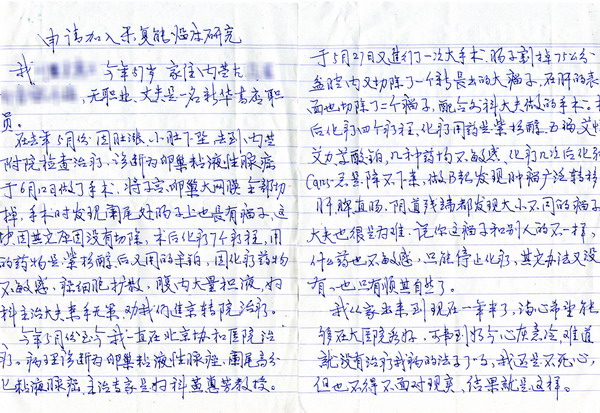 申请加入朵复能临床研究
我 今年57岁 家住内蒙古
，无职业，丈夫是一名新华书店职
员。
在去年5月份因肚涨，小肚下坠，去到内蒙
附院检查治疗，诊断为卵巢粘液性腺癌
于6月2日做了手术，将子宫、卵巢大网膜全部切
掉，手术时发现阑尾处肠子上也长有瘤子，这
因其它原因没有切除，术后化疗7个疗程，用
的药物是紫杉醇后又用的，因化疗药物
不敏感，癌细胞扩散，腹内大量积液，妇
科主治大夫束手无策，劝我们进京转院治疗。
今年5月份至今我一直在北京协和医院治
疗。病理诊断为卵巢粘液性腺癌，阑尾高分
化粘液腺癌，主治专家是妇科黄惠芳教授。
于5月27日又进行了一次大手术，肠子割掉75公分
盆腔内又切除了一个新长出的大瘤子，在肝的表
面也切除了二个瘤子，配合外科大夫做的手术。术
后化疗四个疗程，化疗用药是紫杉醇、
艾力、铂，几种药均不敏感，化疗几次后化验
老是降不下来，做B超发现肿瘤广泛转移
肝脾直肠、阴道残端都发现大小不同的瘤子
大夫也很是为难，说你这瘤子和别人的不一样，
什么药也不敏感，只能停止化疗，其它办法又没
有，也只有顺其自然了。
我从家出来到现在一年半了，满心希望能
够在大医院治好，可事到如今心灰意冷，难道
就没有治疗我病的法子了吗，我还是不死心，
但也不得不面对现实，结果就是这样。